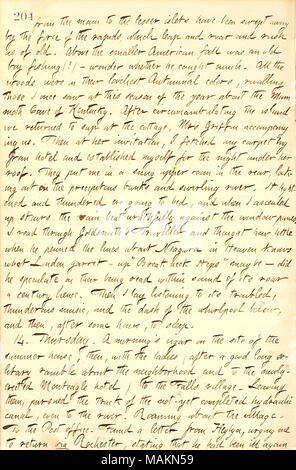 204
from the main to the lesser islets have been swept away
by the force of the rapids, which leap and roar and rush
as of old. Above the smaller American fall was an old
boy fishing (!) – wonder whether he caught much. All the
woods were in their loveliest Autumnal colors, rivalling
those I once saw at this season of the year about the Mam-
moth Cave of Kentucky. After circumambulating the island
we returned to sup at the cottage, Mrs Griffin accompany-
ing us. Then at her invitation, I fetched my carpet bag
from hotel and established myself for the night under her
roof. They put me in a snug upper room in the rear, look-
ing out on the precipitous banks and swirling river. It light-
ened and thundered on going to bed, and when I ascended
up stairs the rain beat wrathfully against the window panes.
I read through Goldsmith's Traveller and thought how little
when he penned the lines about Niagara – in Heaven knows
what London garret – up "Break Neck Steps" maybe – did
he speculate on their being read within sound of its roar
a century hence. Then I lay listening to its troubled,
thunderous music, and the dash of the whirlpool below,
and then, after some hours, to sleep.
14. Thursday. A morning's cigar on the site of the
summer house; then, with the ladies, after a good long
library ramble about the neighborhood and to the newly-
erected Monteagle hotel, to the Falls village. Leaving
them, pursued the track of the not-yet completed hydraulic
canal, even to the river. Roaming about the village.
To the Post office. Found a letter from Haylun, urging me
to return via Rochester, stating that he had been ill again
alamy
Image ID: MAKN59
www.alamy.com